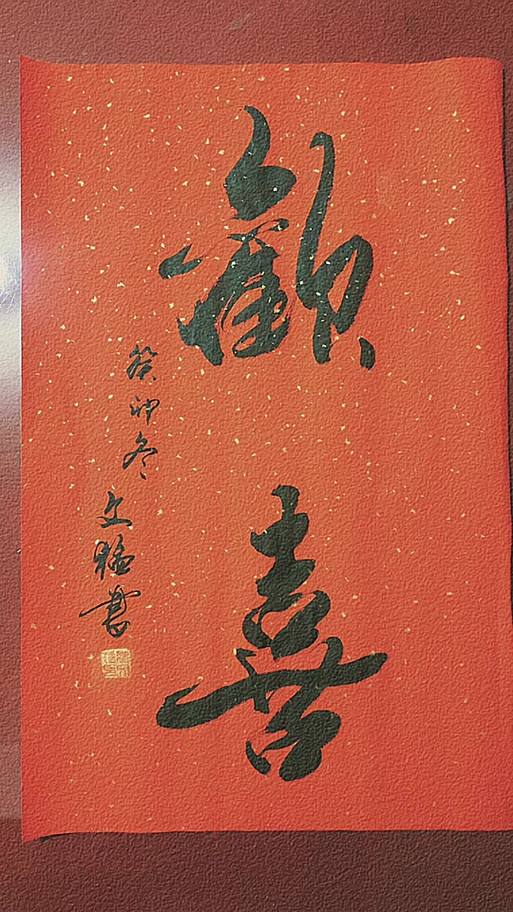 歡喜
癸卯冬文猛書